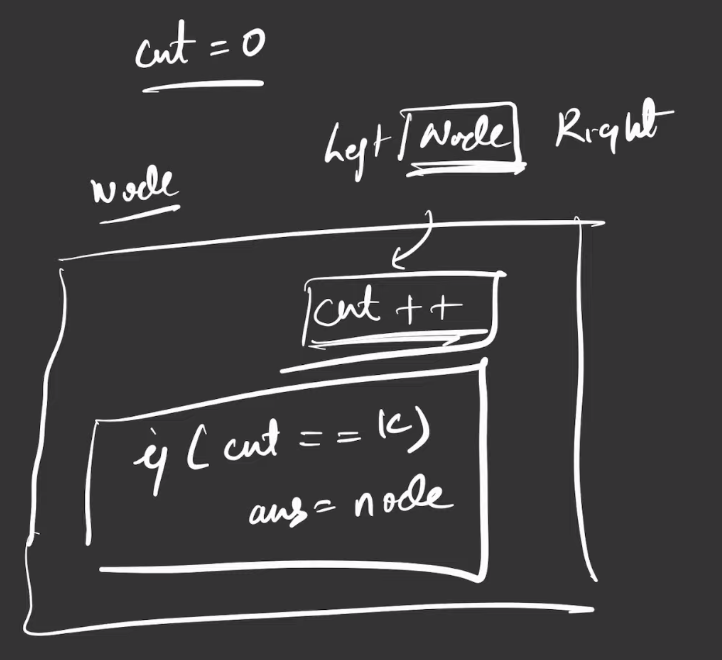 cnt = 0
Left Node Right
Node
cnt ++
if ( cnt == k )
ans = node